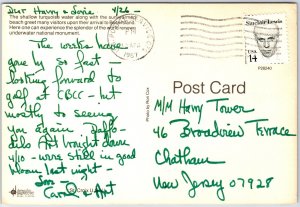 The shallow turquoise water along with the sunbleached
beach greet many visitors upon their arrival to
Here one can experience the splendor of the world renown
underwater national monument.
Dear Harry & Lorie 4/26 -
The weeks have
gone by so fast -
looking forward to
golf at CBCC - but
mostly to seeing
you again.
Art brought down
4/10 - were still in good
last night -
Carol & Art
1987
Sinclair Lewis
USA
14
P28240
Post Card
Photo by Rick Cox
M/M Harry Tower
46 Broadview Terrace
Chatham
New Jersey 07928
St. Croix